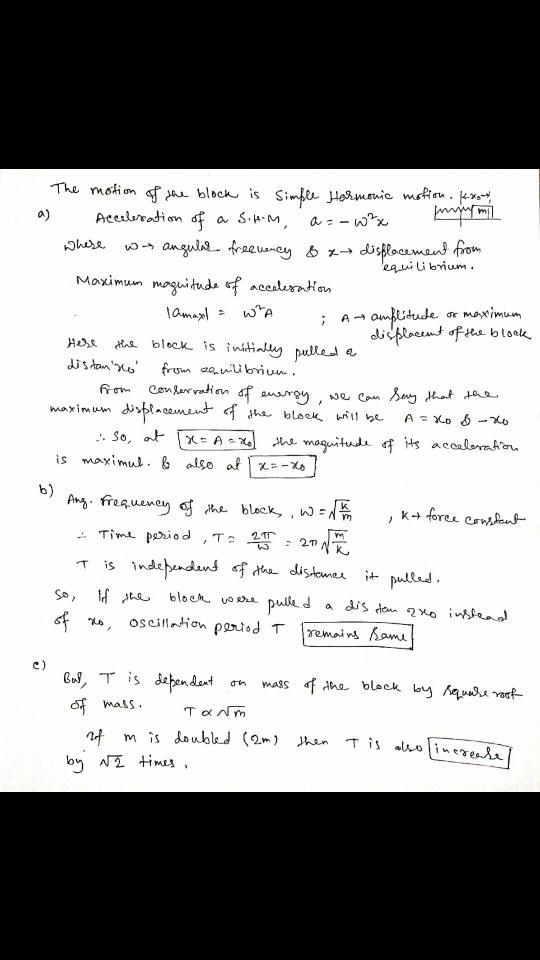 The motion of the block is Simple Harmonic motion. k x0→
m
a) Acceleration of a S.H.M, a = -ω²x
where ω → angular frequency & x → displacement from
equilibrium.
Maximum magnitude of acceleration
|amax| = ω²A ; A → amplitude or maximum
displacemt of the block
Here the block is initially pulled a
distan 'x0' from equilibrium.
From conservation of energy, we can say that the
maximum displacement of the block will be A = x0 & -x0
∴ So, at x = A = x0 the magnitude of its acceleration
is maximul. & also at x = -x0
b) Ang. frequency of the block, ω = √(k/m) , K → force constant
∴ Time period, T = 2π/ω = 2π√(m/k)
T is independent of the distance it pulled.
So, If the block were pulled a distan 2x0 instead
of x0, oscillation period T remains same
c) But, T is dependent on mass of the block by square root
of mass. T ∝ √m
If m is doubled (2m) then T is also increase
by √2 times.